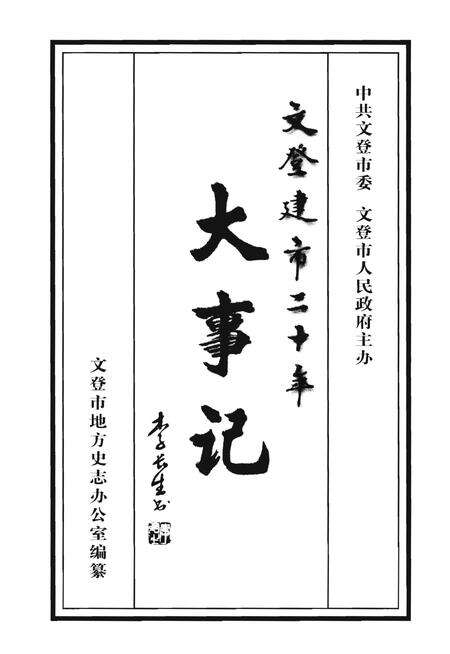 中共文登市委　文登市人民政府主办
文登建市二十年
大事记
李长生
文登市地方史志办公室编纂